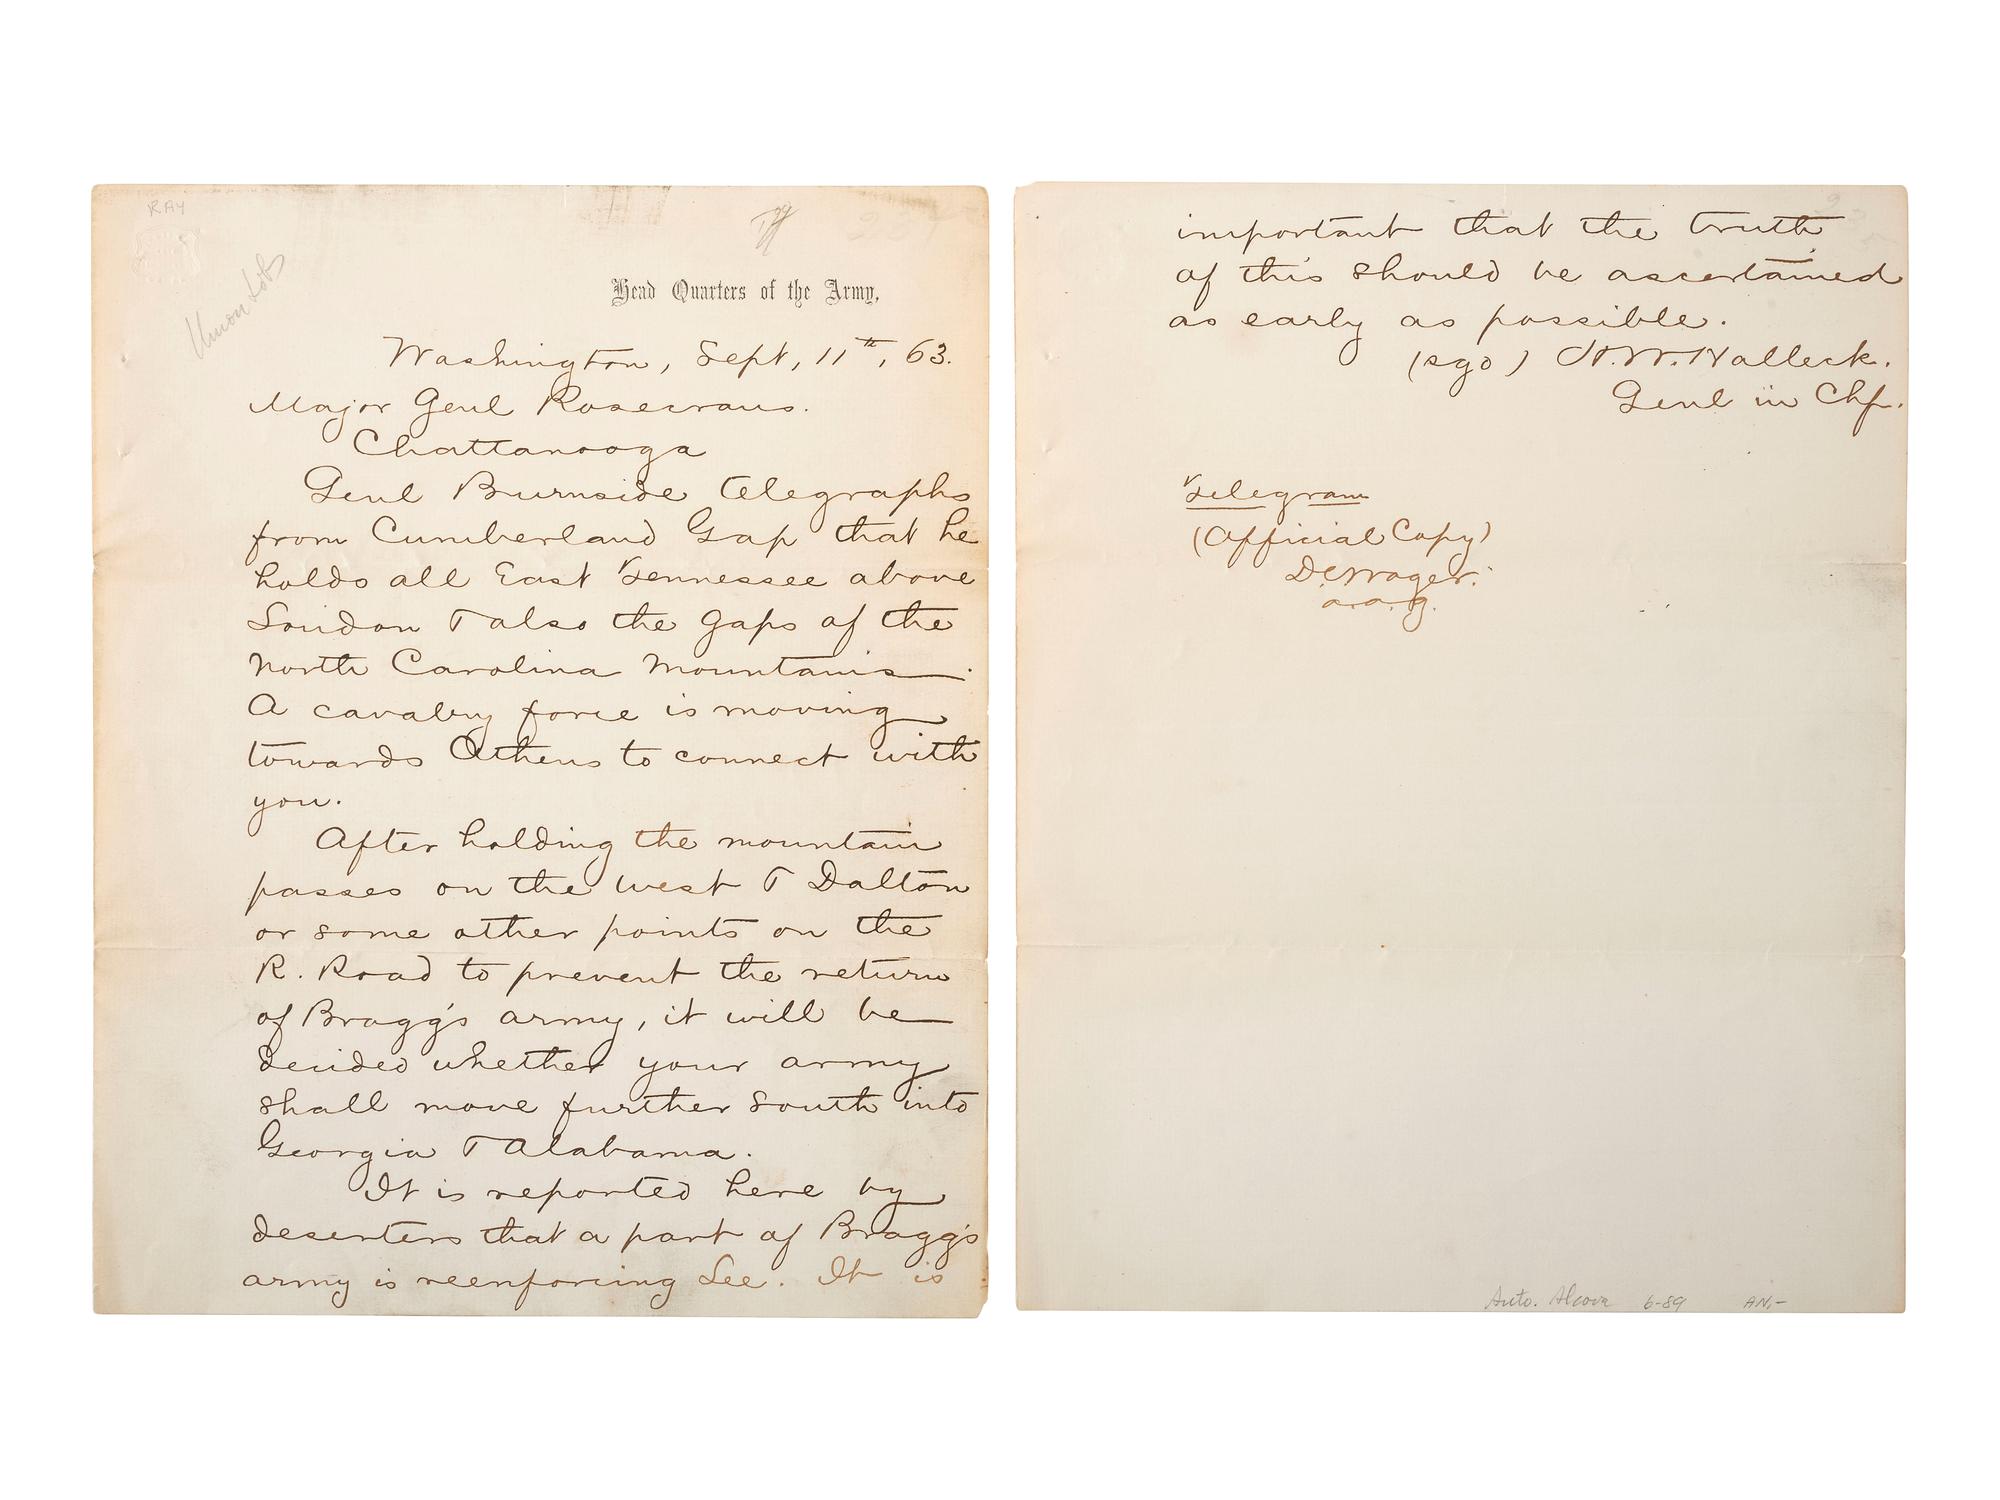 RAY
Union Lob
Head Quarters of the Army,
Washington, Sept, 11th, 63.
Major Genl Rosecrans.
Chattanooga
Genl Burnside telegraphs
from Cumberland Gap that he
holds all East Tennessee above
Loudon & also the gaps of the
North Carolina Mountains.
A cavalry force is moving
towards Athens to connect with
you.
After holding the mountain
passes on the west & Dalton
or some other points on the
R. Road to prevent the return
of Bragg's army, it will be
decided whether your army
shall move further South into
Georgia & Alabama.
It is reported here by
deserters that a part of Bragg's
army is reenforcing Lee. It is
important that the truth
of this should be ascertained
as early as possible.
(sgd) H.W. Halleck.
Genl in Chf.
Telegram
(Official Copy)
D.C. Wager.
a.a.g.
Auto. Alcove 6-89 AN.-